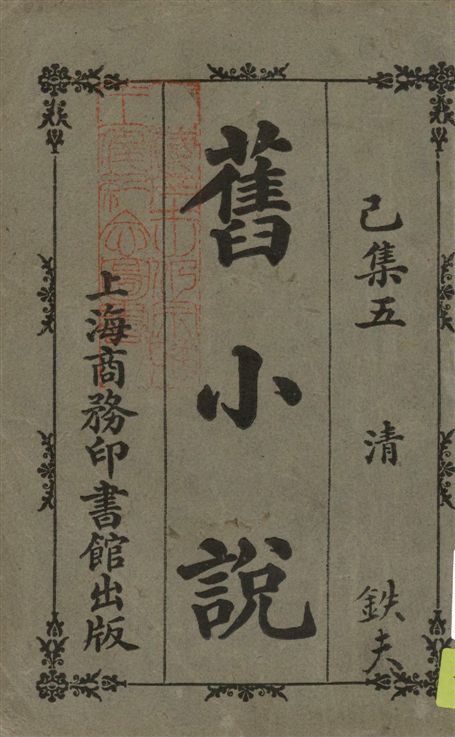 己集五 清 鉄夫
舊小說
上海商務印書館出版